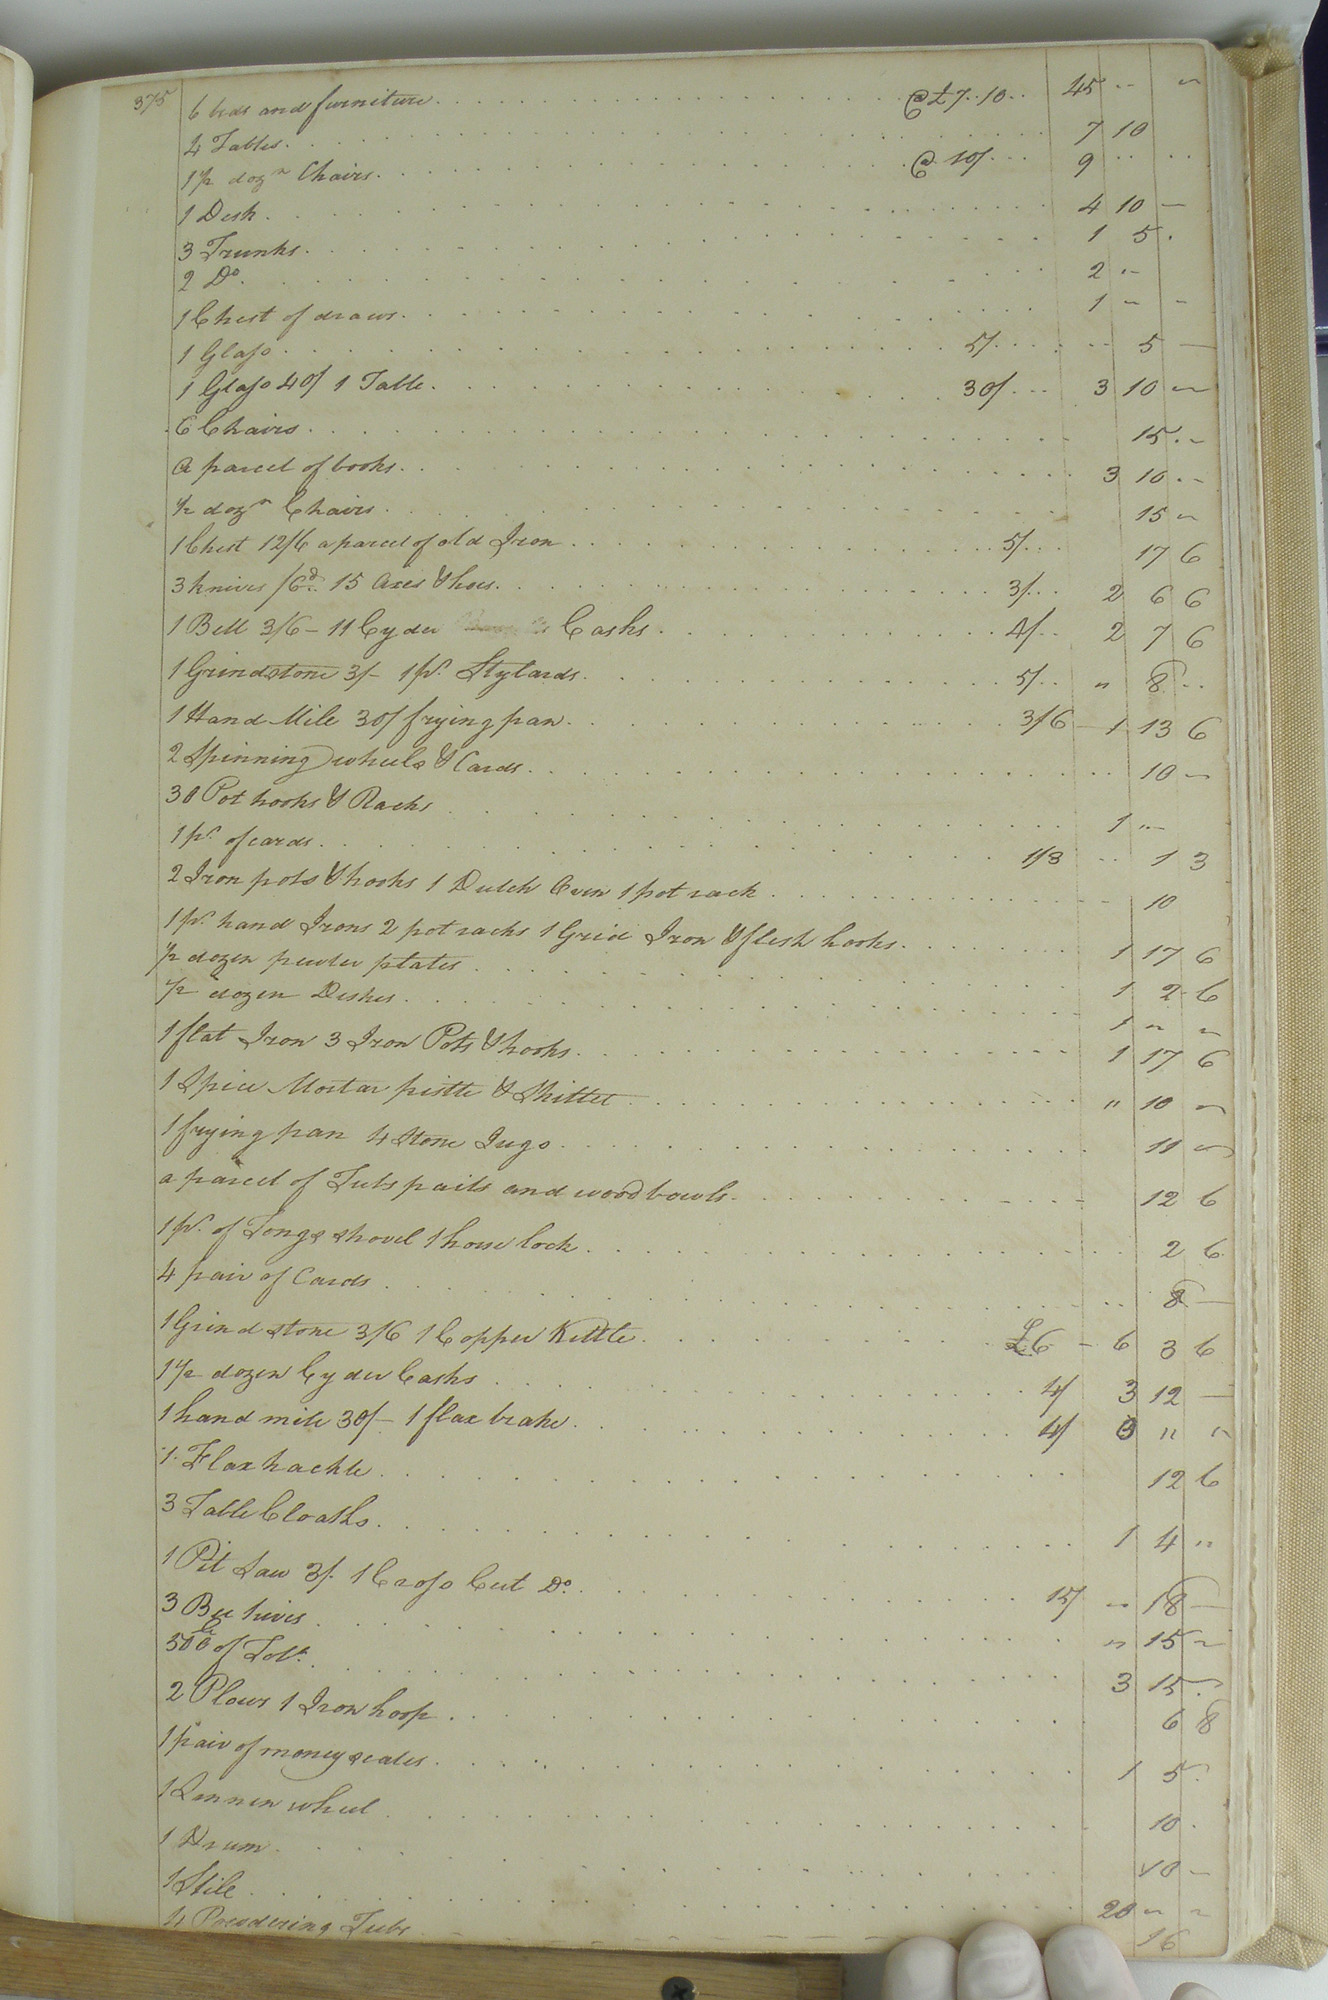 375 6 beds and furniture @ £7..10.. 45 .. ..
4 Tables 7 10
1½ dozn Chairs @ 10/ 9 .. ..
1 Desk 4 10 —
3 Trunks 1 5 .
2 Do 2 ..
1 Chest of draws 1 .. ..
1 Glass 5/ .. 5 —
1 Glass 40/ 1 Table 30/ 3 10 —
6 Chairs 15 . —
a parcel of books 3 10 . —
½ dozn Chairs 15 —
1 Chest 12/6 a parcel of old Iron 5/ 17 6
3 knives /6d 15 Axes & hoes 3/ 2 6 6
1 Bell 3/6 – 11 Cyder Casks 4/ 2 7 6
1 Grindstone 3/– 1 pr Stylards 5/ " 8 ..
1 Hand Mile 30/ frying pan 3/6 – 1 13 6
2 Spinning wheels & Cards 10 —
30 Pot hooks & Racks 1 ..
1 pr of cards 1/3 .. 1 3
2 Iron pots & hooks 1 Dutch Oven 1 pot rack 10
1 pr hand Irons 2 pot racks 1 Grid Iron & flesh hooks 1 17 6
½ dozen pewter plates 1 2 6
½ dozen Dishes 1 — —
1 flat Iron 3 Iron Pots & hooks 1 17 6
1 Spice Mortar pistle & Skillet " 10 —
1 frying pan 4 Stone Jugs 11 —
a parcel of Tubs pails and wood bowls 12 6
1 pr of Tongs shovel 1 horse lock 2 6
4 pair of Cards 8 —
1 Grind stone 3/6 1 Copper Kettle £6 – 6 3 6
1½ dozen Cyder Casks 4/ 3 12 —
1 hand mile 30/– 1 flax brake 4/ " "
1 Flax hackle 12 6
3 Table Cloaths 1 4 "
1 Pit Saw 3/. 1 Cross Cut Do 15/ — 18 —
3 Bee hives " 15 —
500 lb of Tobo 3 15 .
2 Plows 1 Iron hoop 6 8
1 pair of money scales 1 5 .
1 Lennen wheel 10 .
1 Drum 10 —
1 Stile 20 — —
4 Powdering Tubs 16